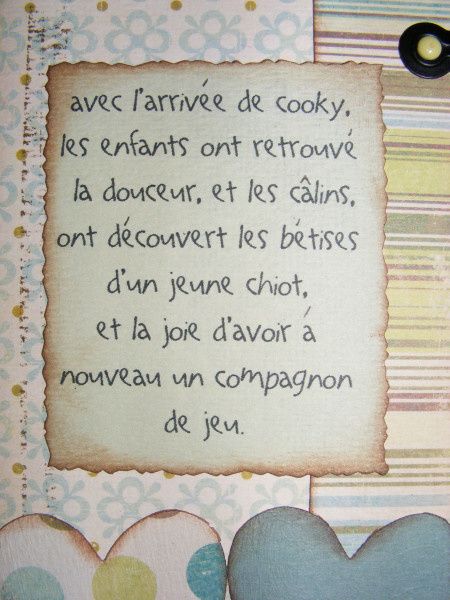 avec l'arrivée de cooky,
les enfants ont retrouvé
la douceur, et les câlins,
ont découvert les bétises
d'un jeune chiot,
et la joie d'avoir á
nouveau un compagnon
de jeu.